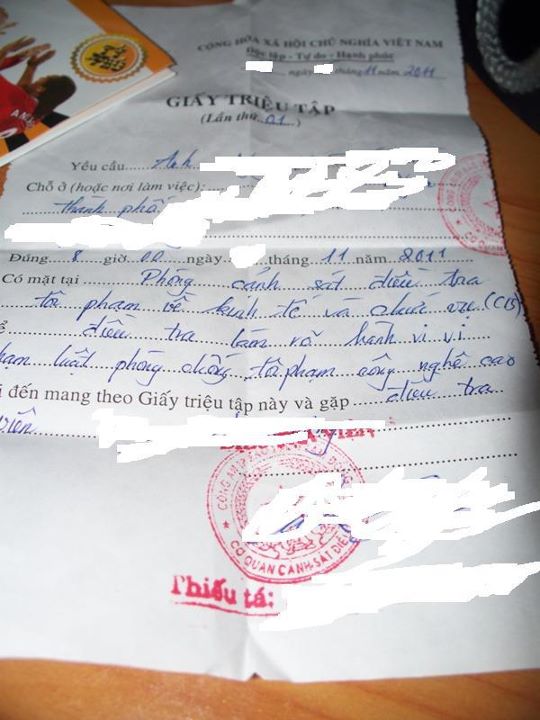 CỘNG HÒA XÃ HỘI CHỦ NGHĨA VIỆT NAM
Độc lập - Tự do - Hạnh phúc
ngày tháng 11 năm 2011
GIẤY TRIỆU TẬP
(Lần thứ 01)
Yêu cầu Anh
Chỗ ở (hoặc nơi làm việc):
thành phố
Đúng 8 giờ 00 ngày tháng 11 năm 2011
Có mặt tại Phòng cảnh sát điều tra
tội phạm về kinh tế và chức vụ
điều tra làm rõ hành vi vi
phạm luật phòng chống tội phạm công nghệ cao
đến mang theo Giấy triệu tập này và gặp điều tra
viên
CƠ QUAN CẢNH SÁT ĐIỀU
Thiếu tá: